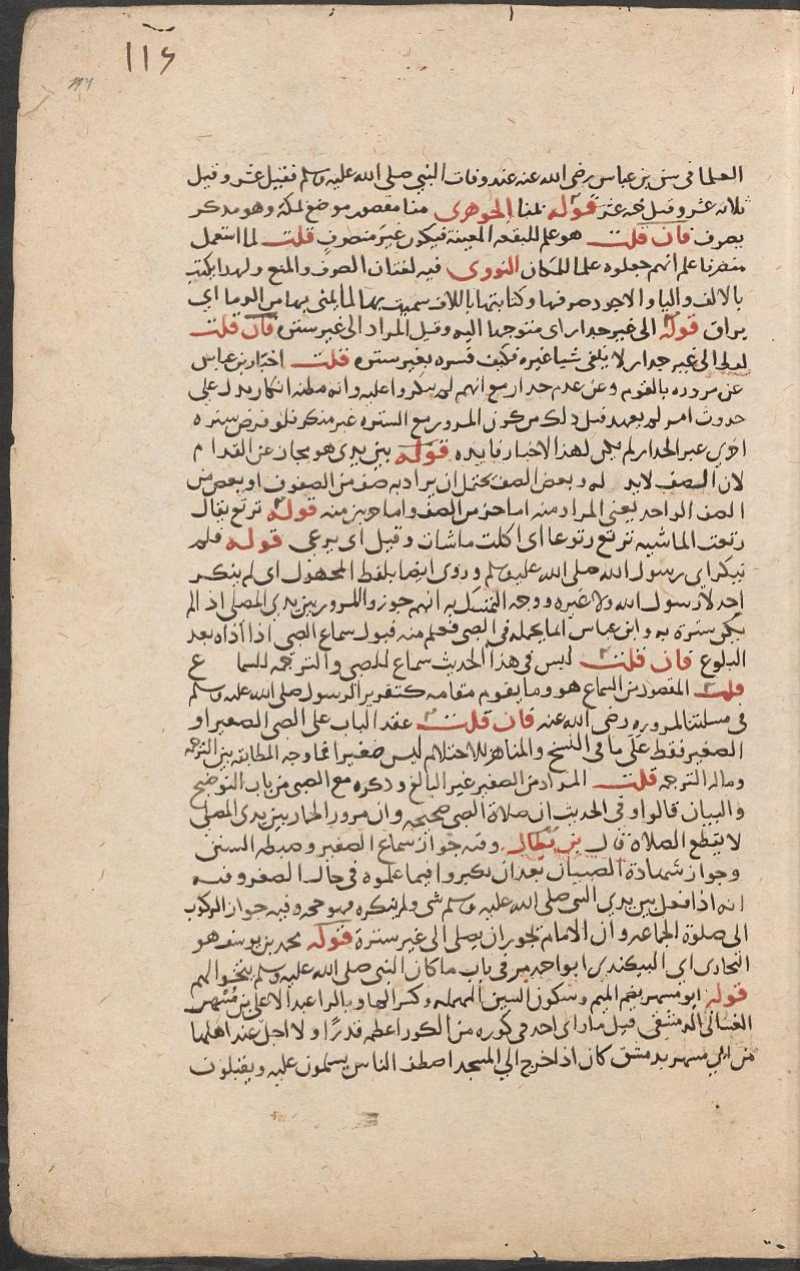 ١١٤
العلما في سن بن عباس رضى الله عنه عند وفات النبي صلى الله عليه وسلم فقيل عشر وقيل
ثلاثه عشر وقيل خمسه عشر قوله بمنا الجوهرى منا مقصور موضع بمكة وهو مذكر
يصرف فان قلت هو علم للبقعه المعينة فيكون غير منصرف قلت لما استعمل
منصرفا علم انهم جعلوه علما للمكان النووى فيه لغتان الصرف والمنع ولهذا يكتب
بالالف واليا والاجود صرفها وكتابتها بالالف سميت بها لما يمنى بها من الدما اى
يراق قوله الى غير جدار اى متوجها اليه وقيل المراد الى غير ستره فان قلت
لفظ الى غير جدار لا ينفى شيا غيره فكيف فسره بغير ستره قلت اخبار بن عباس
عن مروره بالقوم وعن عدم جدار مع انهم لم ينكروا عليه وانه مظنة انكار يدل على
حدوث امر لم يعهد قبل ذلك من كون المرور مع الستره غير منكر فلو فرض ستره
اخرى غير الجدار لم يكن لهذا الاخبار فايده قوله بين يدى هو مجاز عن القدام
لان الصف لا يد له وبعض الصف يحتمل ان يراد به صف من الصفوف او بعض من
الصف الواحد يعنى المراد منه اما جز من الصف واما جز منه قوله ترتع يقال
رتعت الماشيه ترتع رتوعا اى اكلت ماشات وقيل اى يرعى قوله فلم
ينكر اى رسول الله صلى الله عليه وسلم وروى ايضا بلفظ المجهول اى لم ينكر
احد لا رسول الله ولا غيره ووجه التمسك به انهم جوزوا المرور بين يدى المصلى اذ الم
يكن سترة به وابن عباس انما يحمله فى الصبى فعلم منه قبول سماع الصبى اذا اداه بعد
البلوغ فان قلت ليس فى هذا الحديث سماع للصبى والترجمه للسماع
قلت المقصود من السماع هو وما يقوم مقامه كتقرير الرسول صلى الله عليه وسلم
فى مسلتنا لمروره رضى الله عنه فان قلت عقد الباب على الصبى الصغير او
الصغير فقط على ما فى النسخ والمناهز للاحتلام ليس صغيرا فما وجه المطابقه بين الترجمه
وماله الترجمه قلت المراد من الصغير غير البالغ وذكره مع الصبى من باب التوضيح
والبيان قالوا وفى الحديث ان صلاة الصبى صحيحه وان مرور الحمار بين يدى المصلى
لا يقطع الصلاه قال بن بطال وفيه جواز سماع الصغير وضبطه السنن
وجواز شهادة الصبيان بعد ان يكبروا فيما علموه فى حال الصغر وفيه
انه اذا فعل بين يدي النبي صلى الله عليه وسلم شى ولم ينكره فهو حجه وفيه جواز الركوب
الى صلوة الجماعه وان الامام يجوز ان يصلى الى غير سترة قوله محمد بن يوسف هو
البخارى اي البيكندى ابو احمد مر فى باب ما كان النبي صلى الله عليه وسلم يتخولهم
قوله ابو مسهر بضم الميم وسكون السين المهمله وكسر الها وبالرا عبد الاعلى بن مسهر
الغسانى الدمشقى قيل ما راى احد فى كوره من الكور اعظم قدرا ولا اجل عند اهلها
من ابي مسهر بدمشق كان اذا خرج الي المسجد اصطف الناس يسلمون عليه ويقبلون